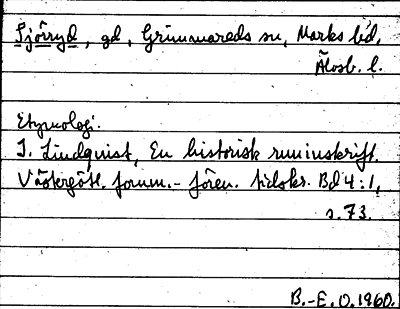 Sjörryd, gd, Grimmareds sn, Marks hd,
Älvsb. l.
Etymologi.
I. Lindquist, En historisk runinskrift.
Västergötl. fornm.- fören. tidskr. Bd 4:1,
s. 73.
B.-E. O. 1960.